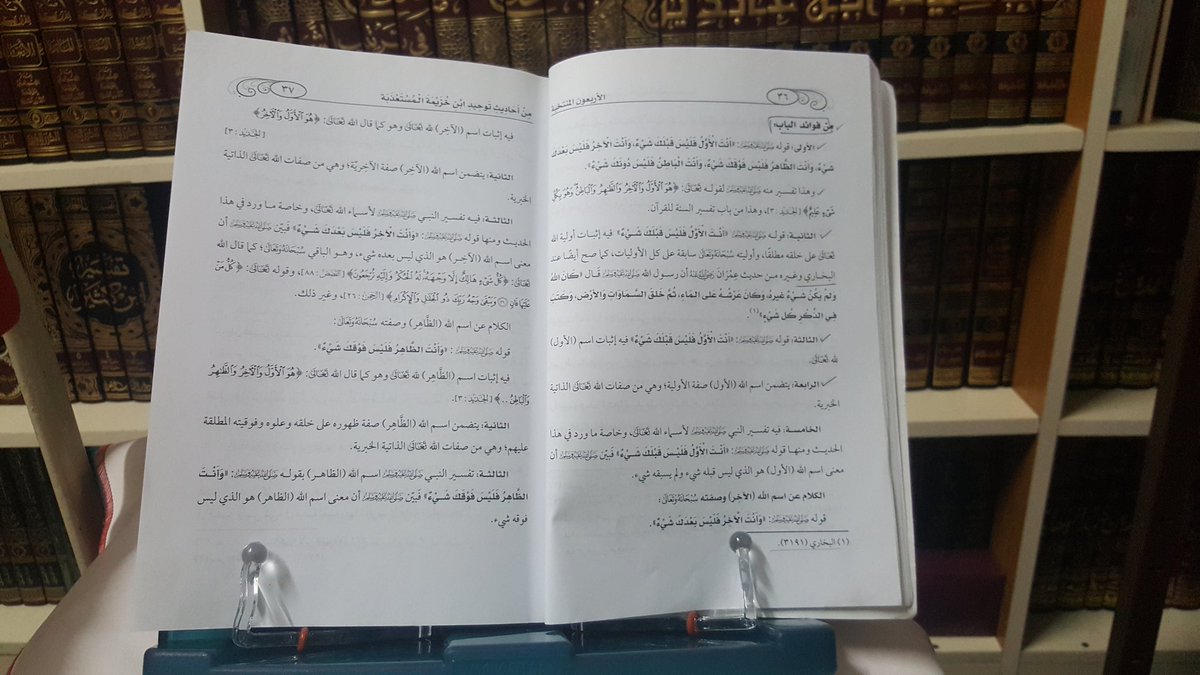 ٣٦
الأربعون المنتخبة
مِنْ فوائد الباب:
الأولى: قوله ﷺ: «أَنْتَ الْأَوَّلُ فَلَيْسَ قَبْلَكَ شَيْءٌ، وَأَنْتَ الْآخِرُ فَلَيْسَ بَعْدَكَ
شَيْءٌ، وَأَنْتَ الظَّاهِرُ فَلَيْسَ فَوْقَكَ شَيْءٌ، وَأَنْتَ الْبَاطِنُ فَلَيْسَ دُونَكَ شَيْءٌ».
وهذا تفسير منه ﷺ لقوله تَعَالَى: ﴿هُوَ ٱلْأَوَّلُ وَٱلْآخِرُ وَٱلظَّٰهِرُ وَٱلْبَاطِنُ وَهُوَ بِكُلِّ
شَيْءٍ عَلِيمٌ﴾ [الحَدِيد: ٣]، وهذا من باب تفسير السنة للقرآن.
الثانية: قوله ﷺ: «أَنْتَ الْأَوَّلُ فَلَيْسَ قَبْلَكَ شَيْءٌ» فيه إثبات أولية الله
تَعَالَى على خلقه مطلقًا، وأوليته سُبْحَانَهُ وَتَعَالَى سابقة على كل الأوليات، كما صح أيضًا عند
البخاري وغيره من حديث عِمْرَانَ رَضِيَ اللَّهُ عَنْهُ أن رسول الله ﷺ قال «كَانَ اللهُ
وَلَمْ يَكُنْ شَيْءٌ غَيْرُهُ، وَكَانَ عَرْشُهُ عَلَى المَاءِ، ثُمَّ خَلَقَ السَّمَاوَاتِ وَالأَرْضَ، وَكَتَبَ
فِي الذِّكْرِ كُلَّ شَيْءٍ»(١).
الثالثة: قوله ﷺ: «أَنْتَ الْأَوَّلُ فَلَيْسَ قَبْلَكَ شَيْءٌ» فيه إثبات اسم (الأول)
لله تَعَالَى.
الرابعة: يتضمن اسم الله (الأول) صفة الأولية؛ وهي من صفات الله تَعَالَى الذاتية
الخبرية.
الخامسة: فيه تفسير النبي ﷺ لأسماء الله تَعَالَى، وخاصة ما ورد في هذا
الحديث ومنها قوله ﷺ: «أَنْتَ الْأَوَّلُ فَلَيْسَ قَبْلَكَ شَيْءٌ» فبيَّن ﷺ أن
معنى اسم الله (الأول) هو الذي ليس قبله شيء ولم يسبقه شيء.
الكلام عن اسم الله (الآخر) وصفته سُبْحَانَهُ وَتَعَالَى:
قوله ﷺ: «وَأَنْتَ الْآخِرُ فَلَيْسَ بَعْدَكَ شَيْءٌ».
(١) البخاري (٣١٩١).
مِنْ أحاديث توحيد ابْنِ خُزَيْمَة الْمُسْتَعْذَبَة
٣٧
فيه إثبات اسم (الآخِر) لله تَعَالَى وهو كما قال الله تَعَالَى: ﴿هُوَ ٱلْأَوَّلُ وَٱلْآخِرُ﴾
[الحَدِيد: ٣]
الثانية: يتضمن اسم الله (الآخر) صفة الآخرِيَّة؛ وهي من صفات الله تَعَالَى الذاتية
الخبرية.
الثالثة: فيه تفسير النبي ﷺ لأسماء الله تَعَالَى، وخاصة ما ورد في هذا
الحديث ومنها قوله ﷺ: «وَأَنْتَ الْآخِرُ فَلَيْسَ بَعْدَكَ شَيْءٌ» فبيَّن ﷺ أن
معنى اسم الله (الآخِر) هو الذي ليس بعده شيء، وهو الباقي سُبْحَانَهُ وَتَعَالَى؛ كما قال الله
تَعَالَى: ﴿كُلُّ شَيْءٍ هَالِكٌ إِلَّا وَجْهَهُۥ لَهُ ٱلْحُكْمُ وَإِلَيْهِ تُرْجَعُونَ﴾ [القَصَص: ٨٨]، وقوله تَعَالَى: ﴿كُلُّ مَنْ
عَلَيْهَا فَانٍ ۝ وَيَبْقَىٰ وَجْهُ رَبِّكَ ذُو ٱلْجَلَٰلِ وَٱلْإِكْرَامِ﴾ [الرَّحمن: ٢٦]، وغير ذلك.
الكلام عن اسم الله (الظَّاهِر) وصفته سُبْحَانَهُ وَتَعَالَى:
قوله ﷺ: «وَأَنْتَ الظَّاهِرُ فَلَيْسَ فَوْقَكَ شَيْءٌ».
فيه إثبات اسم (الظَّاهِر) لله تَعَالَى وهو كما قال الله تَعَالَى: ﴿هُوَ ٱلْأَوَّلُ وَٱلْآخِرُ وَٱلظَّٰهِرُ
وَٱلْبَاطِنُ ..﴾ [الحَدِيد: ٣].
الثانية: يتضمن اسم الله (الظَّاهِر) صفة ظهوره على خلقه وعلوه وفوقيته المطلقة
عليهم؛ وهي من صفات الله تَعَالَى الذاتية الخبرية.
الثالثة: تفسير النبي ﷺ اسم الله (الظاهر) بقوله ﷺ: «وَأَنْتَ
الظَّاهِرُ فَلَيْسَ فَوْقَكَ شَيْءٌ» فبيَّن ﷺ أن معنى اسم الله (الظاهر) هو الذي ليس
فوقه شيء.
تفسير
ابن كثير